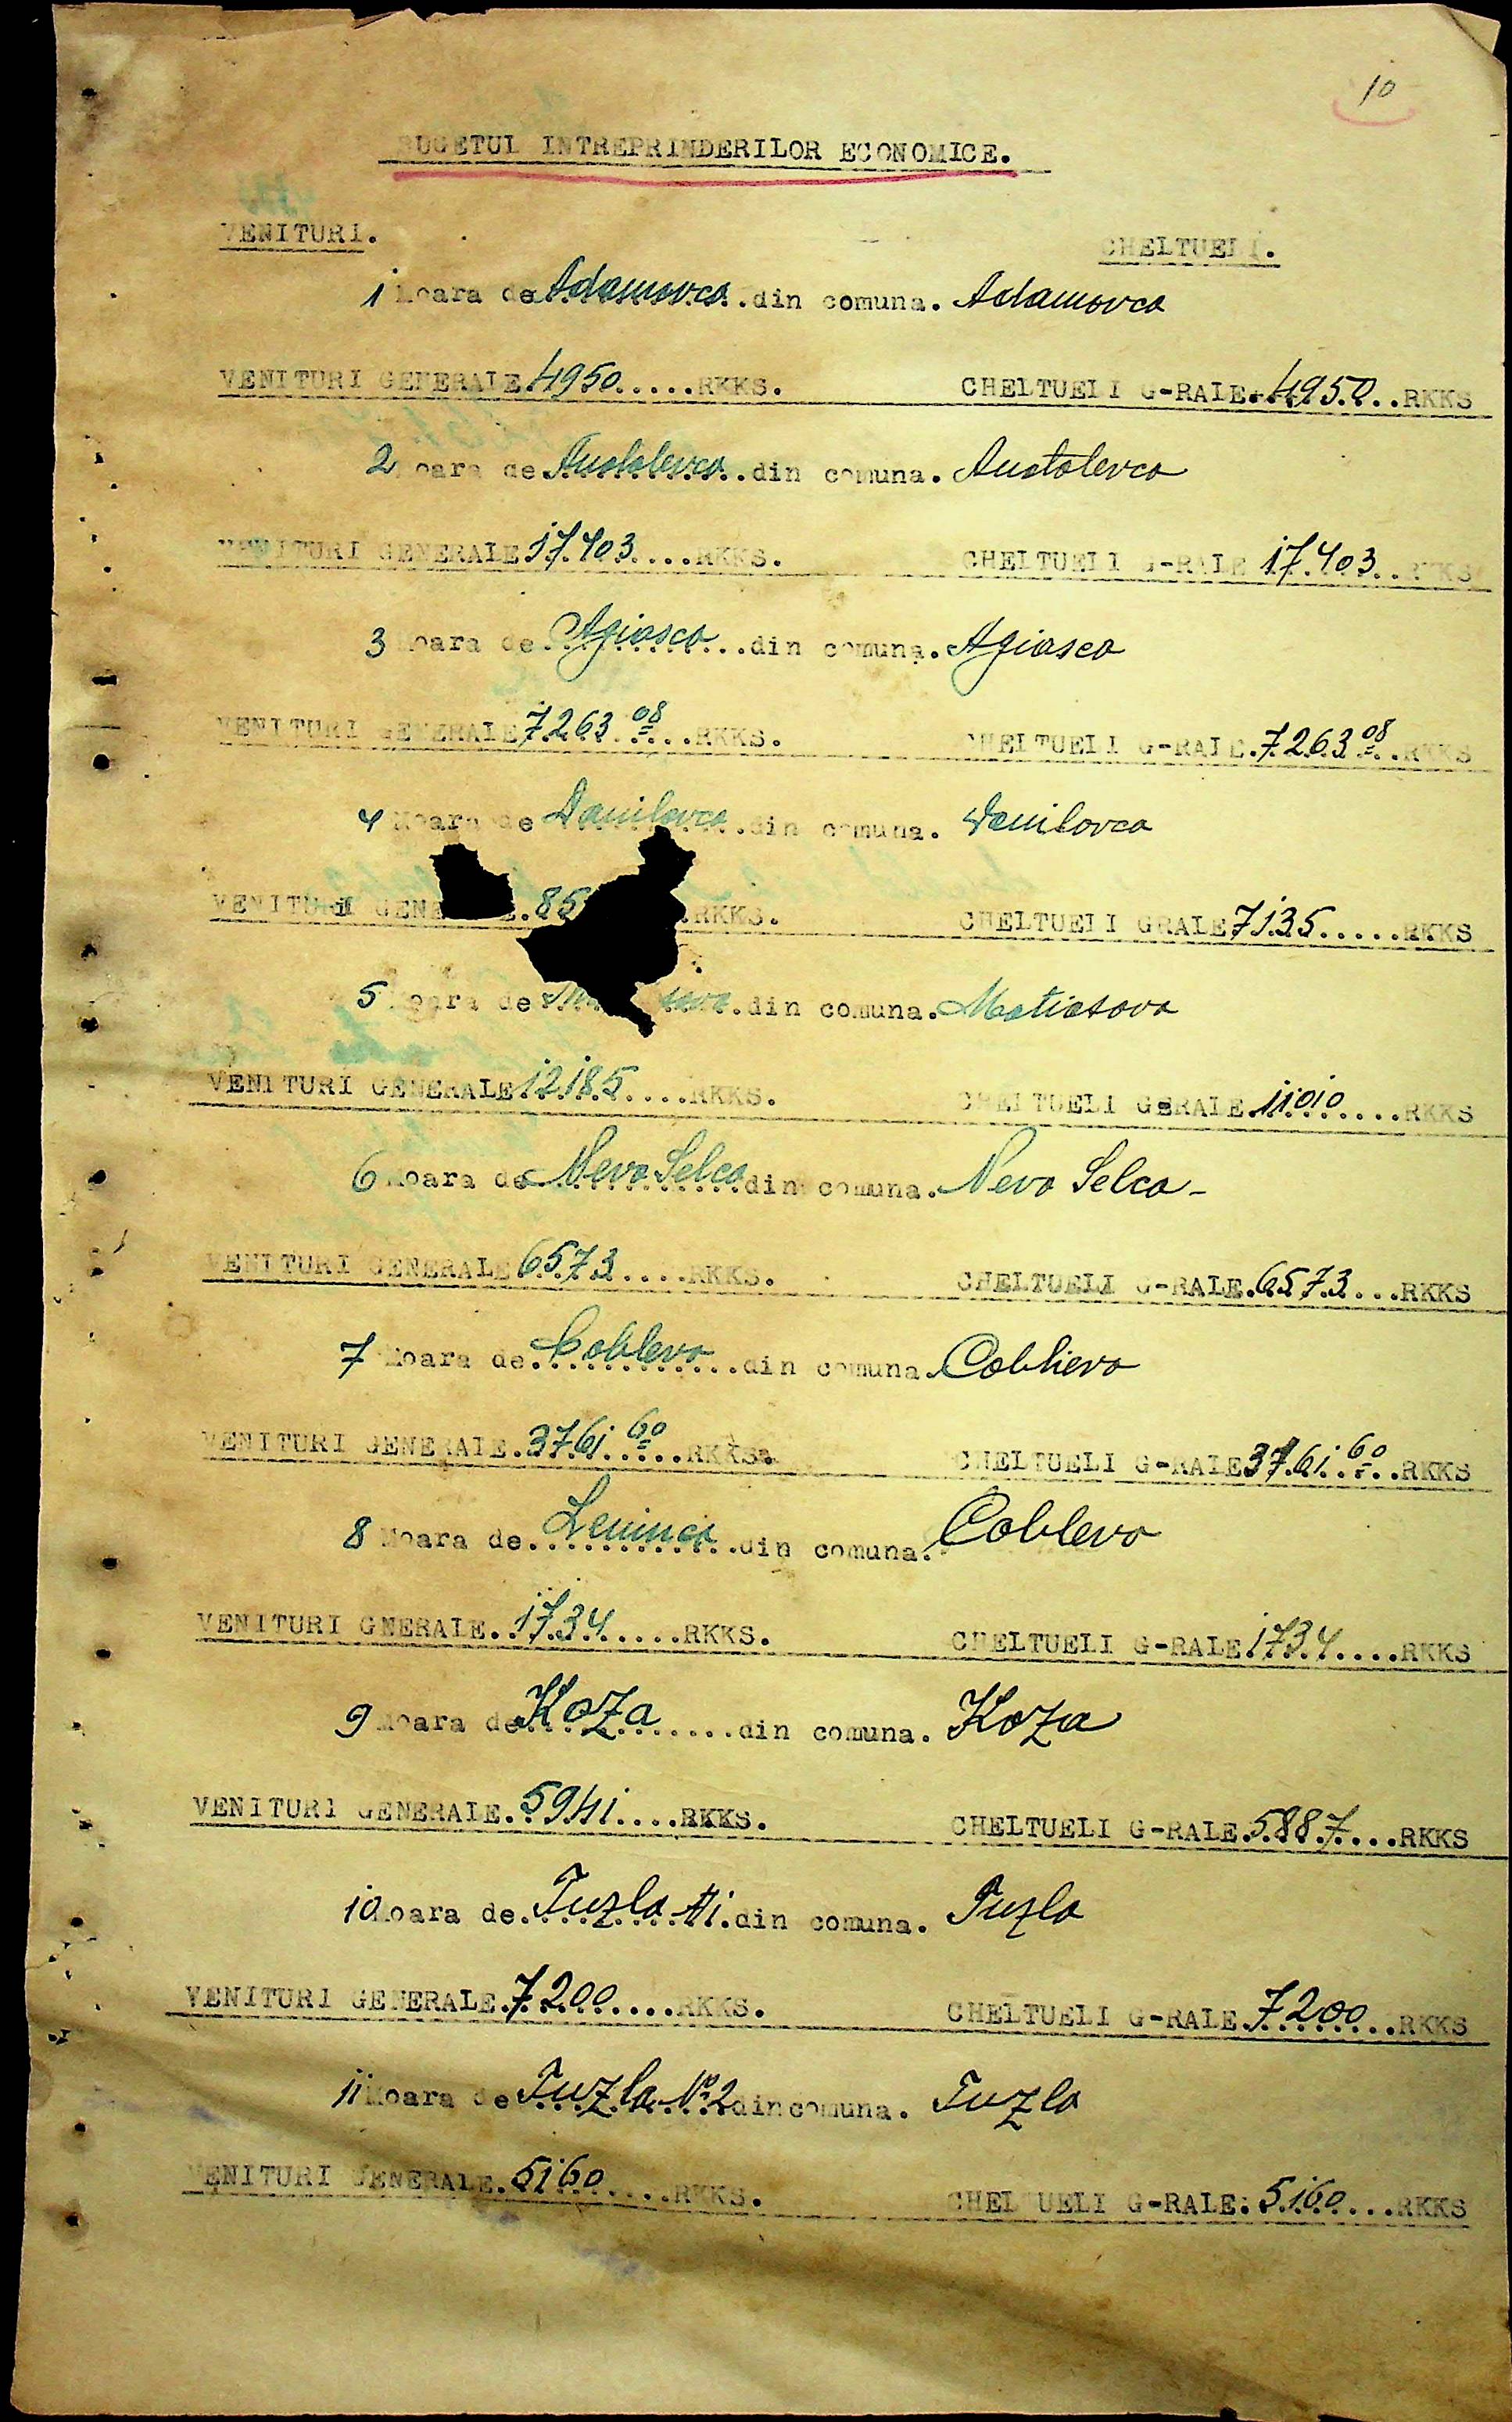 10
BUGETUL INTREPRINDERILOR ECONOMICE.
VENITURI. CHELTUELI.
1 Moara de Adamovca din comuna. Adamovca
VENITURI GENERALE.4950.....RKKS. CHELTUELI G-RALE.4950..RKKS
2 Moara de Anatolevca din comuna. Anatolevca
VENITURI GENERALE 17.403....RKKS. CHELTUELI G-RALE 17.403..RKKS
3 Moara de Agiasca ...din comuna. Agiasca
VENITURI GENERALE 7263 08...RKKS. CHELTUELI G-RALE.7263 08..RKKS
4 Moara de Danilovca .din comuna. Danilovca
VENITURI GENE E.85 .RKKS. CHELTUELI GRALE 7135.....RKKS
5 Moara de din comuna. Matiasova
VENITURI GENERALE 12.185....RKKS. CHELTUELI GERALE.11010....RKKS
6 Moara de Nova Selca din comuna. Nova Selca-
VENITURI GENERALE 6573....RKKS. CHELTUELI G-RALE.6573...RKKS
7 Moara de.Coblevo...din comuna. Coblievo
VENITURI GENERALE.3761 60..RKKS. CHELTUELI G-RALE 3761 60..RKKS
8 Moara de.Leninca.din comuna. Coblevo
VENITURI GNERALE..1734.....RKKS. CHELTUELI G-RALE 1734....RKKS
9 Moara de Koza.......din comuna. Koza
VENITURI GENERALE.5941....RKKS. CHELTUELI G-RALE.5887...RKKS
10 Moara de.Tuzla №1.din comuna. Tuzla
VENITURI GENERALE.7200....RKKS. CHELTUELI G-RALE.7200..RKKS
11 Moara de Tuzla №2 din comuna. Tuzla
VENITURI GENERALE.5160.....RKKS. CHELTUELI G-RALE.5160...RKKS